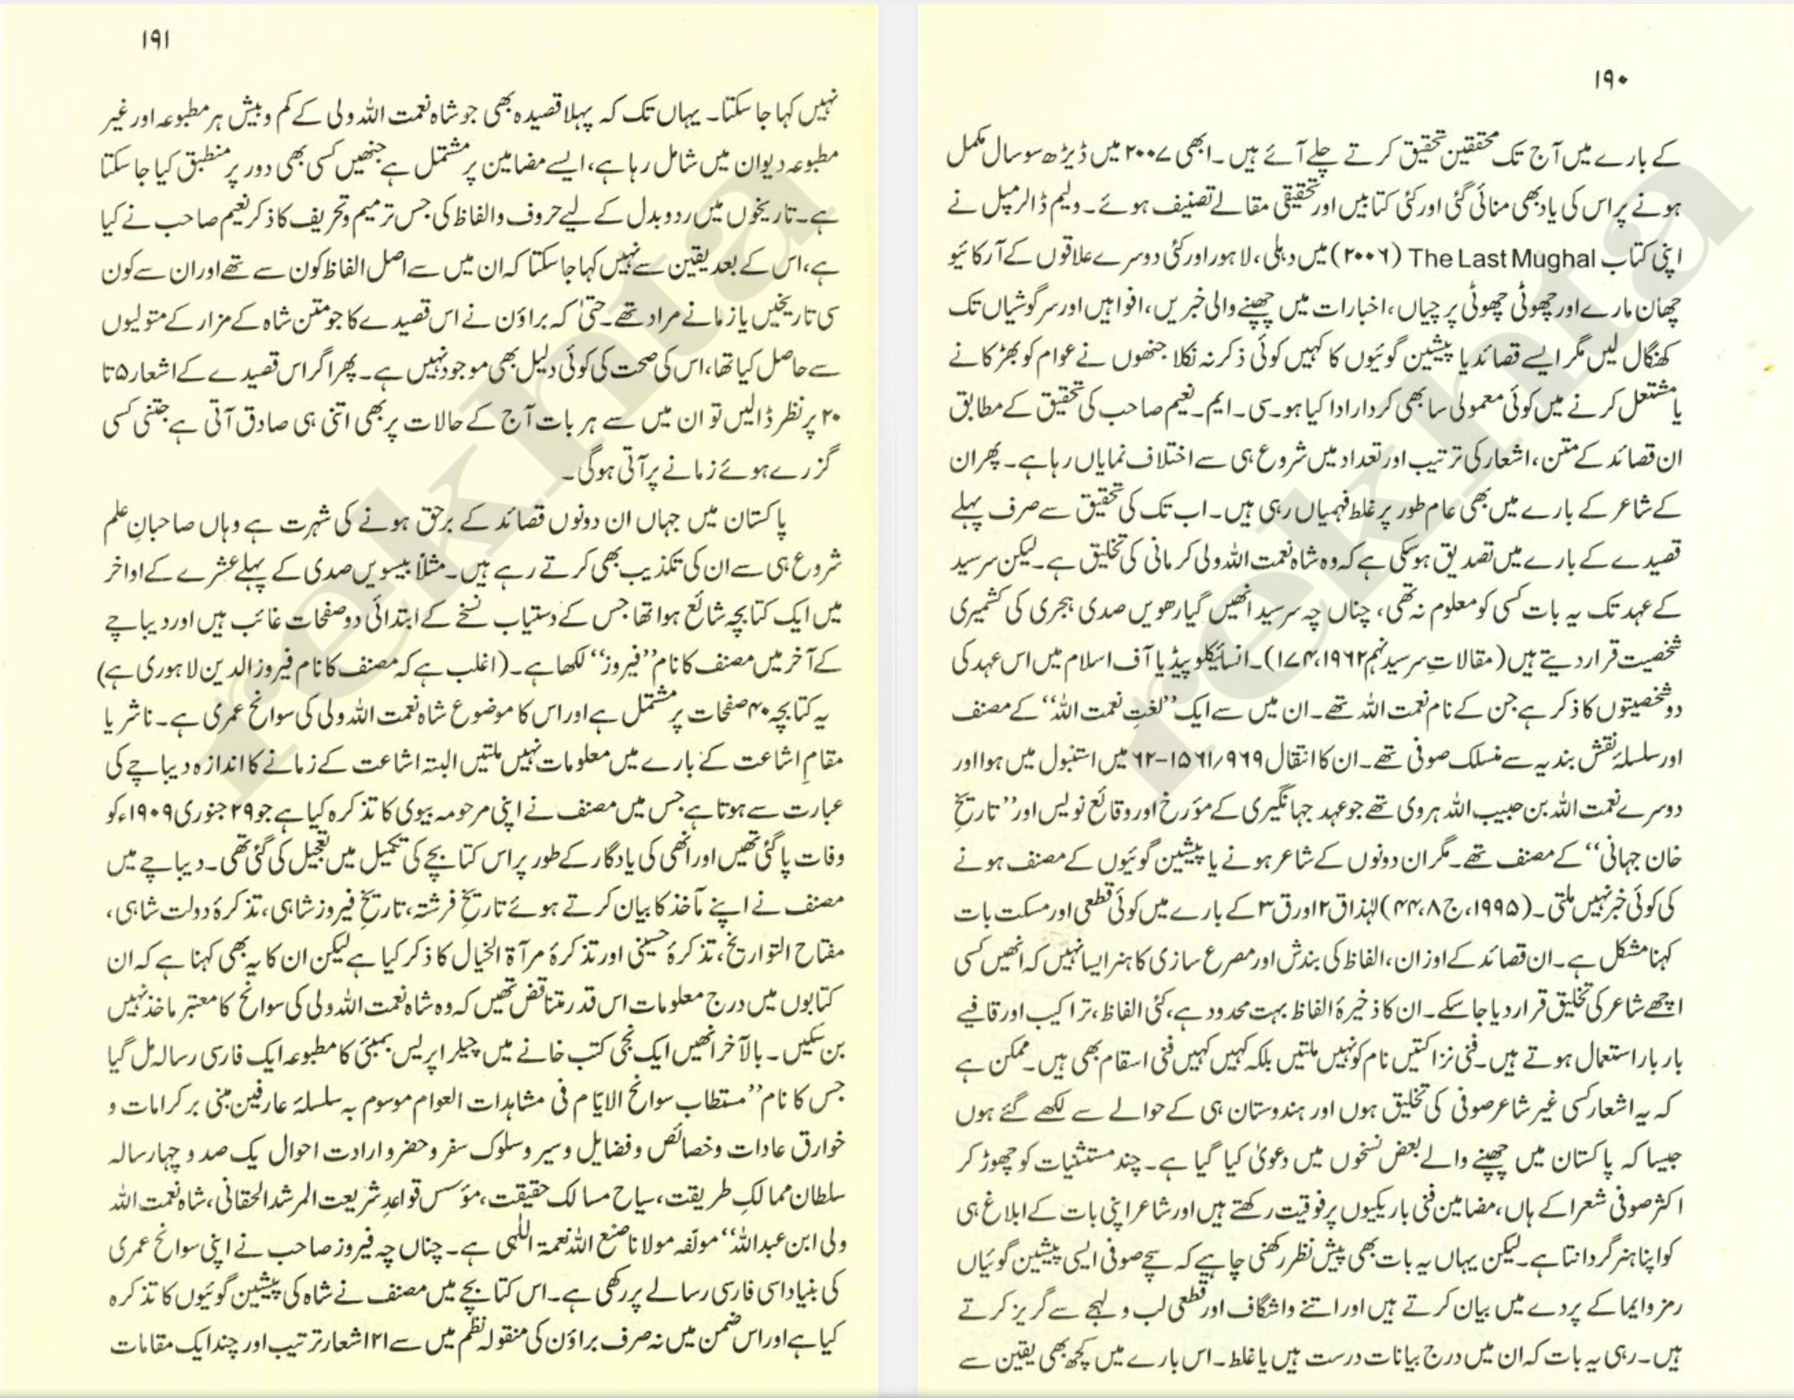 ۱۹۰
کے بارے میں آج تک محققین تحقیق کرتے چلے آئے ہیں۔ ابھی ۲۰۰۷ میں ڈیڑھ سو سال مکمل
ہونے پر اس کی یاد بھی منائی گئی اور کئی کتابیں اور تحقیقی مقالے تصنیف ہوئے۔ ولیم ڈالرمپل نے
اپنی کتاب The Last Mughal (۲۰۰۶) میں دہلی، لاہور اور کئی دوسرے علاقوں کے آرکائیو
چھان مارے اور چھوٹی چھوٹی پرچیاں، اخبارات میں چھپنے والی خبریں، افواہیں اور سرگوشیاں تک
کھنگال لیں مگر ایسے قصائد یا پیشین گوئیوں کا کہیں کوئی ذکر نہ نکلا جنھوں نے عوام کو بھڑکانے
یا مشتعل کرنے میں کوئی معمولی سا بھی کردار ادا کیا ہو۔ سی۔ ایم۔ نعیم صاحب کی تحقیق کے مطابق
ان قصائد کے متن، اشعار کی ترتیب اور تعداد میں شروع ہی سے اختلاف نمایاں رہا ہے۔ پھر ان
کے شاعر کے بارے میں بھی عام طور پر غلط فہمیاں رہی ہیں۔ اب تک کی تحقیق سے صرف پہلے
قصیدے کے بارے میں تصدیق ہوسکی ہے کہ وہ شاہ نعمت اللہ ولی کرمانی کی تخلیق ہے۔ لیکن سرسید
کے عہد تک یہ بات کسی کو معلوم نہ تھی، چناں چہ سرسید انھیں گیارھویں صدی ہجری کی کشمیری
شخصیت قرار دیتے ہیں (مقالاتِ سرسید نہم ۱۹۶۲، ۱۷۴)۔ انسائیکلوپیڈیا آف اسلام میں اس عہد کی
دو شخصیتوں کا ذکر ہے جن کے نام نعمت اللہ تھے۔ ان میں سے ایک ’’لغتِ نعمت اللہ‘‘ کے مصنف
اور سلسلۂ نقش بندیہ سے منسلک صوفی تھے۔ ان کا انتقال ۹۶۹/۱۵۶۱-۶۲ میں استنبول میں ہوا اور
دوسرے نعمت اللہ بن حبیب اللہ ہروی تھے جو عہد جہانگیری کے مؤرخ اور وقائع نویس اور ’’تاریخِ
خان جہانی‘‘ کے مصنف تھے۔ مگر ان دونوں کے شاعر ہونے یا پیشین گوئیوں کے مصنف ہونے
کی کوئی خبر نہیں ملتی۔ (۱۹۹۵، ج ۸، ۴۴) لہٰذا ق۲ اور ق۳ کے بارے میں کوئی قطعی اور مسکت بات
کہنا مشکل ہے۔ ان قصائد کے اوزان، الفاظ کی بندش اور مصرع سازی کا ہنر ایسا نہیں کہ انھیں کسی
اچھے شاعر کی تخلیق قرار دیا جاسکے۔ ان کا ذخیرۂ الفاظ بہت محدود ہے، کئی الفاظ، تراکیب اور قافیے
بار بار استعمال ہوتے ہیں۔ فنی نزاکتیں نام کو نہیں ملتیں بلکہ کہیں کہیں فنی اسقام بھی ہیں۔ ممکن ہے
کہ یہ اشعار کسی غیر شاعر صوفی کی تخلیق ہوں اور ہندوستان ہی کے حوالے سے لکھے گئے ہوں
جیسا کہ پاکستان میں چھپنے والے بعض نسخوں میں دعویٰ کیا گیا ہے۔ چند مستثنیات کو چھوڑ کر
اکثر صوفی شعرا کے ہاں، مضامین فنی باریکیوں پر فوقیت رکھتے ہیں اور شاعر اپنی بات کے ابلاغ ہی
کو اپنا ہنر گردانتا ہے۔ لیکن یہاں یہ بات بھی پیش نظر رکھنی چاہیے کہ سچے صوفی ایسی پیشین گوئیاں
رمز و ایما کے پردے میں بیان کرتے ہیں اور اتنے واشگاف اور قطعی لب و لہجے سے گریز کرتے
ہیں۔ رہی یہ بات کہ ان میں درج بیانات درست ہیں یا غلط۔ اس بارے میں کچھ بھی یقین سے
۱۹۱
نہیں کہا جاسکتا۔ یہاں تک کہ پہلا قصیدہ بھی جو شاہ نعمت اللہ ولی کے کم و بیش ہر مطبوعہ اور غیر
مطبوعہ دیوان میں شامل رہا ہے، ایسے مضامین پر مشتمل ہے جنھیں کسی بھی دور پر منطبق کیا جاسکتا
ہے۔ تاریخوں میں ردوبدل کے لیے حروف و الفاظ کی جس ترمیم و تحریف کا ذکر نعیم صاحب نے کیا
ہے، اس کے بعد یقین سے نہیں کہا جاسکتا کہ ان میں سے اصل الفاظ کون سے تھے اور ان سے کون
سی تاریخیں یا زمانے مراد تھے۔ حتیٰ کہ براؤن نے اس قصیدے کا جو متن شاہ کے مزار کے متولیوں
سے حاصل کیا تھا، اس کی صحت کی کوئی دلیل بھی موجود نہیں ہے۔ پھر اگر اس قصیدے کے اشعار ۵ تا
۲۰ پر نظر ڈالیں تو ان میں سے ہر بات آج کے حالات پر بھی اتنی ہی صادق آتی ہے جتنی کسی
گزرے ہوئے زمانے پر آتی ہوگی۔
پاکستان میں جہاں ان دونوں قصائد کے برحق ہونے کی شہرت ہے وہاں صاحبانِ علم
شروع ہی سے ان کی تکذیب بھی کرتے رہے ہیں۔ مثلاً بیسویں صدی کے پہلے عشرے کے اواخر
میں ایک کتابچہ شائع ہوا تھا جس کے دستیاب نسخے کے ابتدائی دو صفحات غائب ہیں اور دیباچے
کے آخر میں مصنف کا نام ’’فیروز‘‘ لکھا ہے۔ (اغلب ہے کہ مصنف کا نام فیروز الدین لاہوری ہے)
یہ کتابچہ ۴۰ صفحات پر مشتمل ہے اور اس کا موضوع شاہ نعمت اللہ ولی کی سوانح عمری ہے۔ ناشر یا
مقامِ اشاعت کے بارے میں معلومات نہیں ملتیں البتہ اشاعت کے زمانے کا اندازہ دیباچے کی
عبارت سے ہوتا ہے جس میں مصنف نے اپنی مرحومہ بیوی کا تذکرہ کیا ہے جو ۲۹ جنوری ۱۹۰۹ء کو
وفات پاگئی تھیں اور انھی کی یادگار کے طور پر اس کتابچے کی تکمیل میں تعجیل کی گئی تھی۔ دیباچے میں
مصنف نے اپنے مآخذ کا بیان کرتے ہوئے تاریخِ فرشتہ، تاریخِ فیروز شاہی، تذکرۂ دولت شاہی،
مفتاح التواریخ، تذکرۂ حسینی اور تذکرۂ مرآۃ الخیال کا ذکر کیا ہے لیکن ان کا یہ بھی کہنا ہے کہ ان
کتابوں میں درج معلومات اس قدر متناقض تھیں کہ وہ شاہ نعمت اللہ ولی کی سوانح کا معتبر ماخذ نہیں
بن سکیں۔ بالآخر انھیں ایک نجی کتب خانے میں چیلر اپریس بمبئی کا مطبوعہ ایک فارسی رسالہ مل گیا
جس کا نام ’’مستطاب سوانح الایّام فی مشاہدات العوام موسوم بہ سلسلۂ عارفین مبنی بر کرامات و
خوارق عادات و خصائص و فضایل و سیر و سلوک سفر و حضر و ارادت احوال یک صد و چہار سالہ
سلطان ممالکِ طریقت، سیاح مسالک حقیقت، مؤسس قواعدِ شریعت المرشد الحقانی، شاہ نعمت اللہ
ولی ابن عبداللہ‘‘ مولّفہ مولانا صنع اللہ نعمۃ اللّٰہی ہے۔ چناں چہ فیروز صاحب نے اپنی سوانح عمری
کی بنیاد اسی فارسی رسالے پر رکھی ہے۔ اس کتابچے میں مصنف نے شاہ کی پیشین گوئیوں کا تذکرہ
کیا ہے اور اس ضمن میں نہ صرف براؤن کی منقولہ نظم میں سے ۲۱ اشعار ترتیب اور چند ایک مقامات
rekhta
rekhta